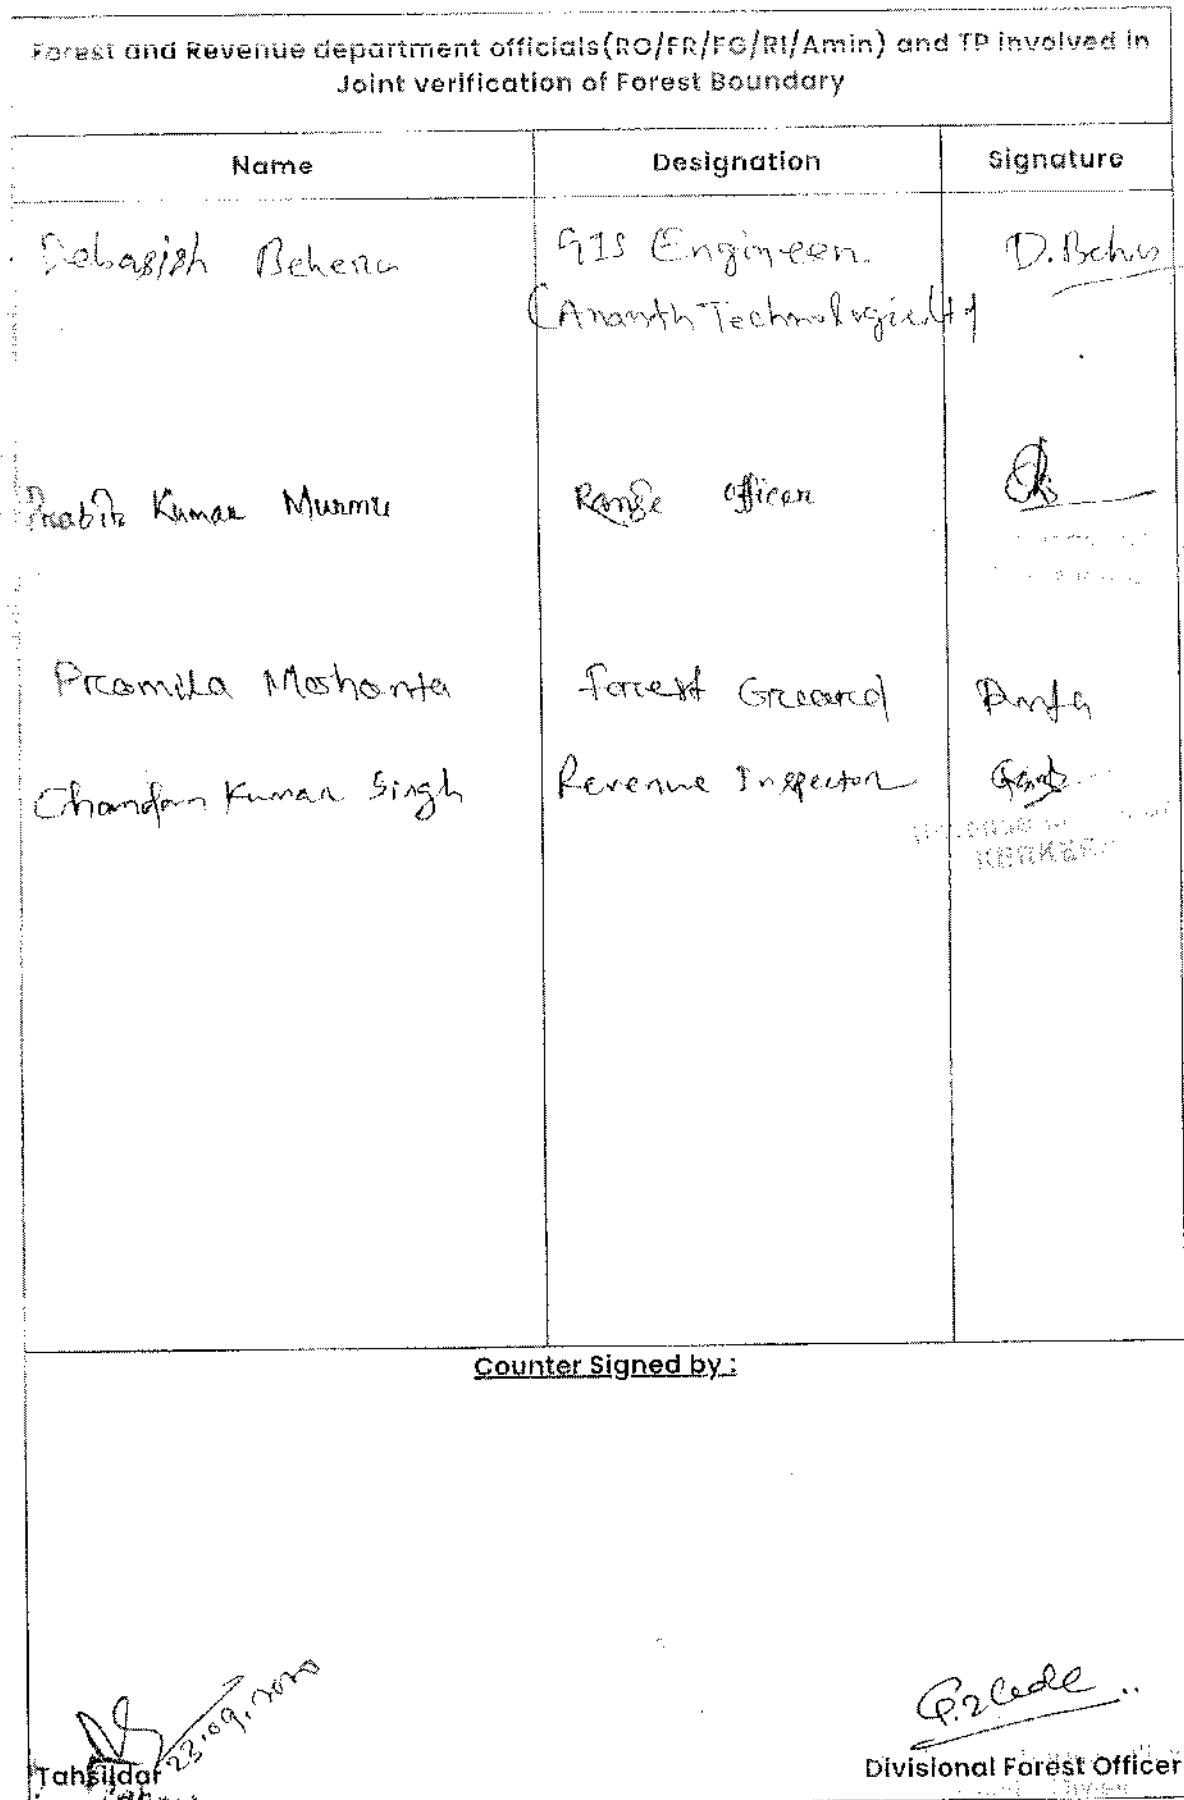 Forest and Revenue department officials(RO/FR/FG/RI/Amin) and TP involved in
Joint verification of Forest Boundary
Name Designation Signature
Debasish Behera GIS Engineer. D. Behera
(Ananth Technologies Ltd)
Prabir Kumar Murmu Range Officer
Pramila Mohanta Forest Guard
Chandan Kumar Singh Revenue Inspector
Counter Signed by :
23.09.2020
Tahsildar Divisional Forest Officer